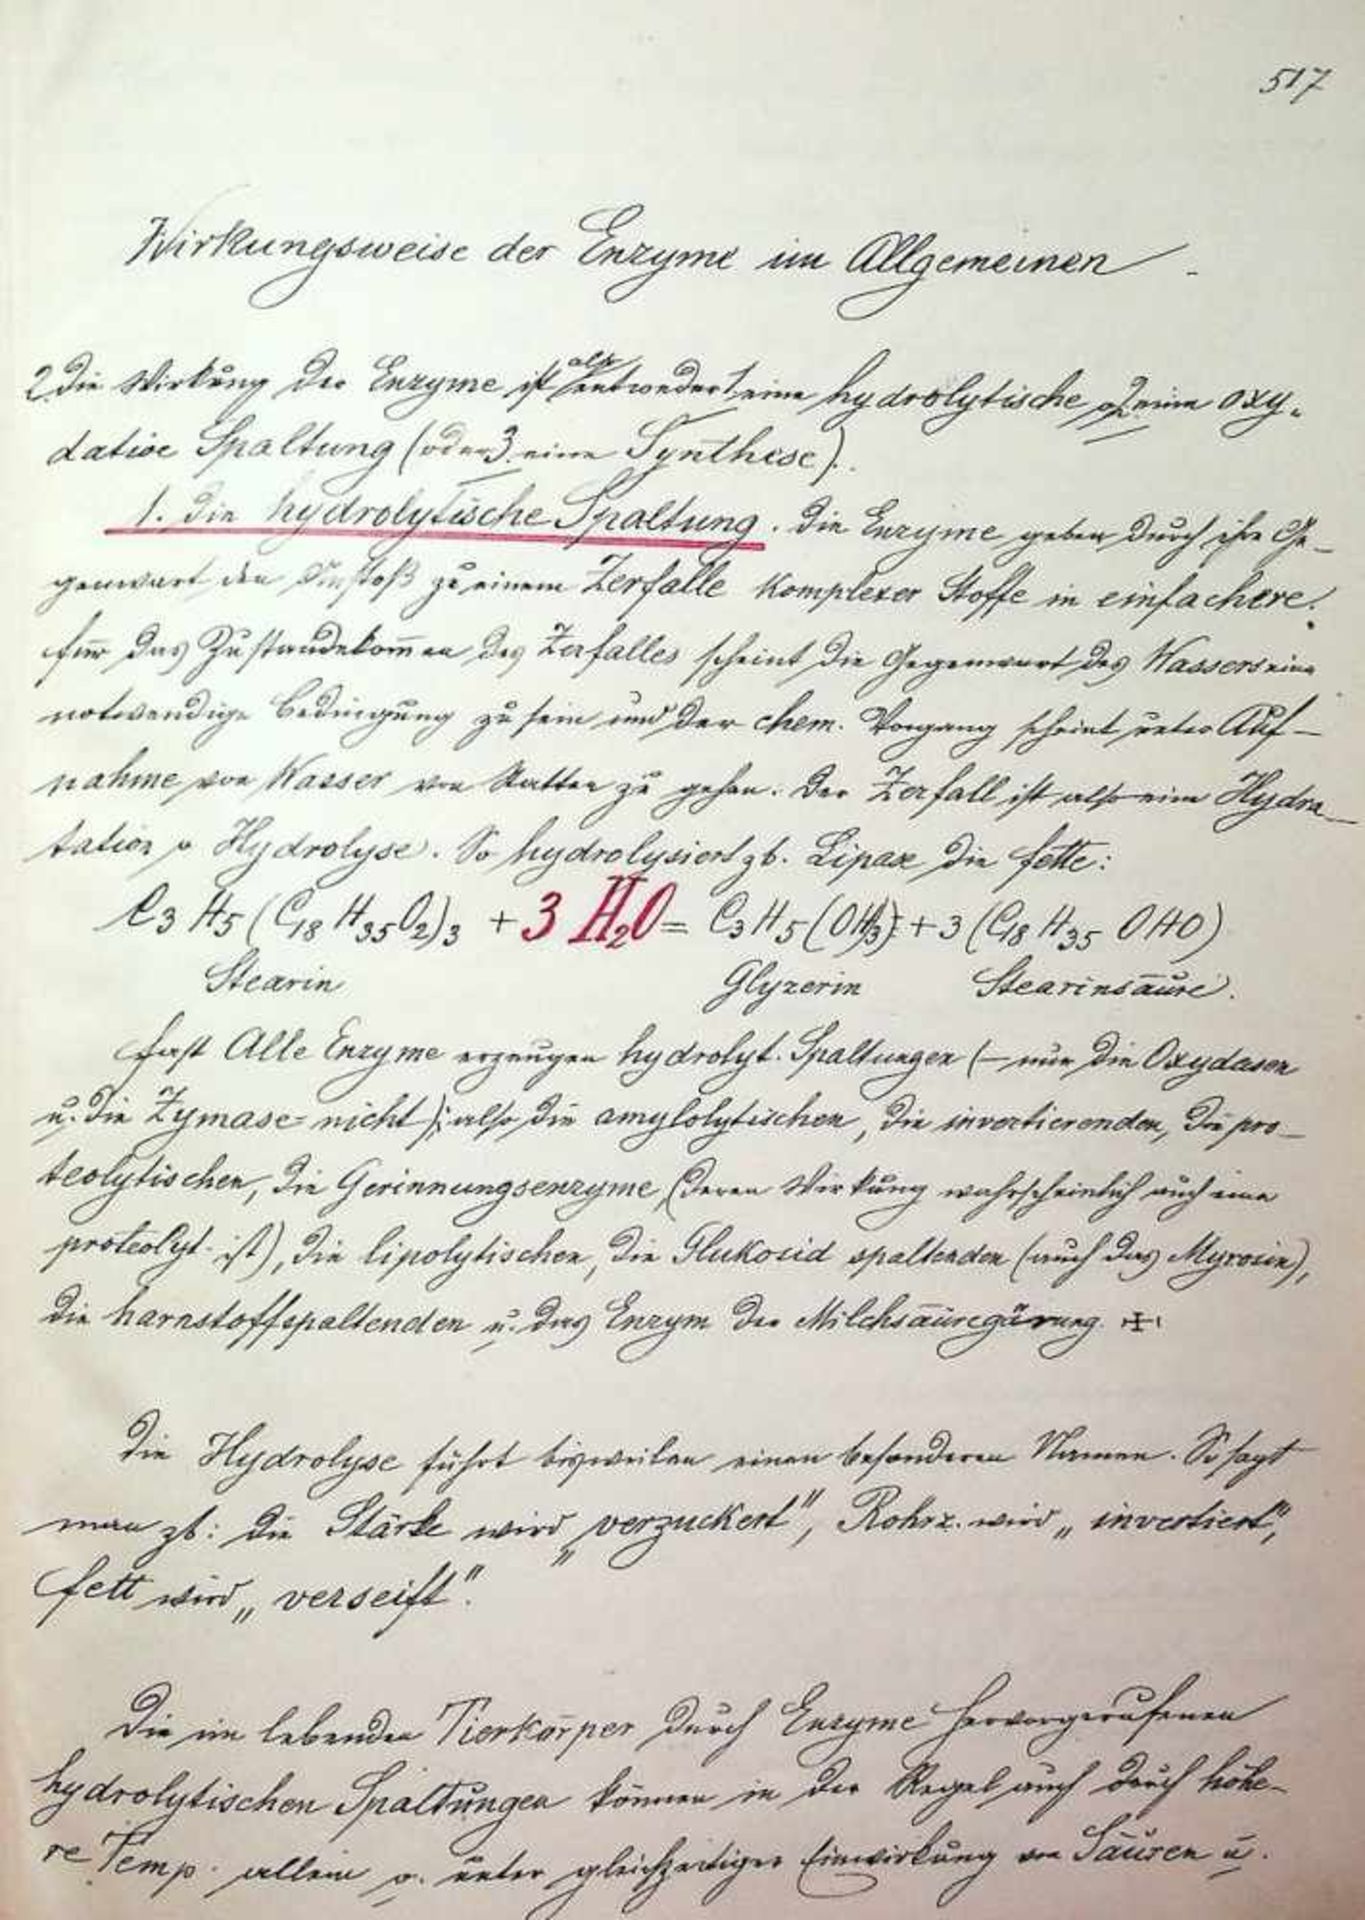 517
Wirkungsweise der Enzyme im Allgemeinen.
2. Die Wirkung der Enzyme ist also entweder 1. eine hydrolytische o. 2. eine oxy-
dative Spaltung (oder 3. eine Synthese).
1. Die hydrolytische Spaltung. Die Enzyme geben durch ihre Ge-
genwart den Anstoß zu einem Zerfalle komplexer Stoffe in einfachere.
Für das Zustandekom̄en des Zerfalles scheint die Gegenwart des Wassers eine
notwendige Bedingung zu sein und der chem. Vorgang scheint unter Auf-
nahme von Wasser von Statten zu gehen. Der Zerfall ist also eine Hydra-
tation o. Hydrolyse. So hydrolysiert zb. Lipase die Fette:
C3 H5 (C18 H35 O2)3 + 3 H2O = C3 H5 (OH)3 + 3 (C18 H35 OHO)
Stearin Glyzerin Stearinsäure.
Fast Alle Enzyme erzeugen hydrolyt. Spaltungen (– nur die Oxydasen
u. die Zymase nicht); also die amylolytischen, die invertierenden, die pro-
teolytischen, die Gerinnungsenzyme (deren Wirkung wahrscheinlich auch eine
proteolyt. ist), die lipolytischen, die Glukosid spaltenden (auch das Myrosin),
die harnstoffspaltenden u. das Enzym der Milchsäuregärung.
Die Hydrolyse führt bisweilen einen besonderen Namen. So sagt
man zb: die Stärke wird „verzuckert“, Rohrz. wird „invertiert“,
Fett wird „verseift“.
Die im lebenden Tierkörper durch Enzyme hervorgerufenen
hydrolytischen Spaltungen können in der Regel auch durch höhe-
re Temp. allein o. unter gleichzeitiger Einwirkung von Säuren u.